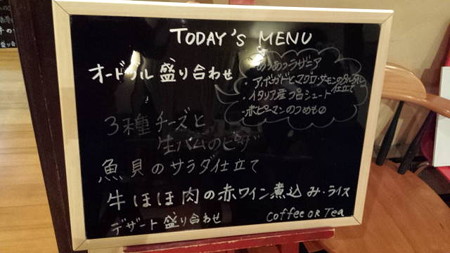 TODAY'S MENU
オードブル 盛り合わせ
あつあつラザニア
・アボガドとマグロ・サーモンのタルタル仕立て
・イタリア産プロシュート
・赤ピーマンのつめもの
3種チーズと
生ハムのピザ
魚貝のサラダ仕立て
牛ほほ肉の赤ワイン煮込み・ライス
デザート盛り合わせ
Coffee OR Tea